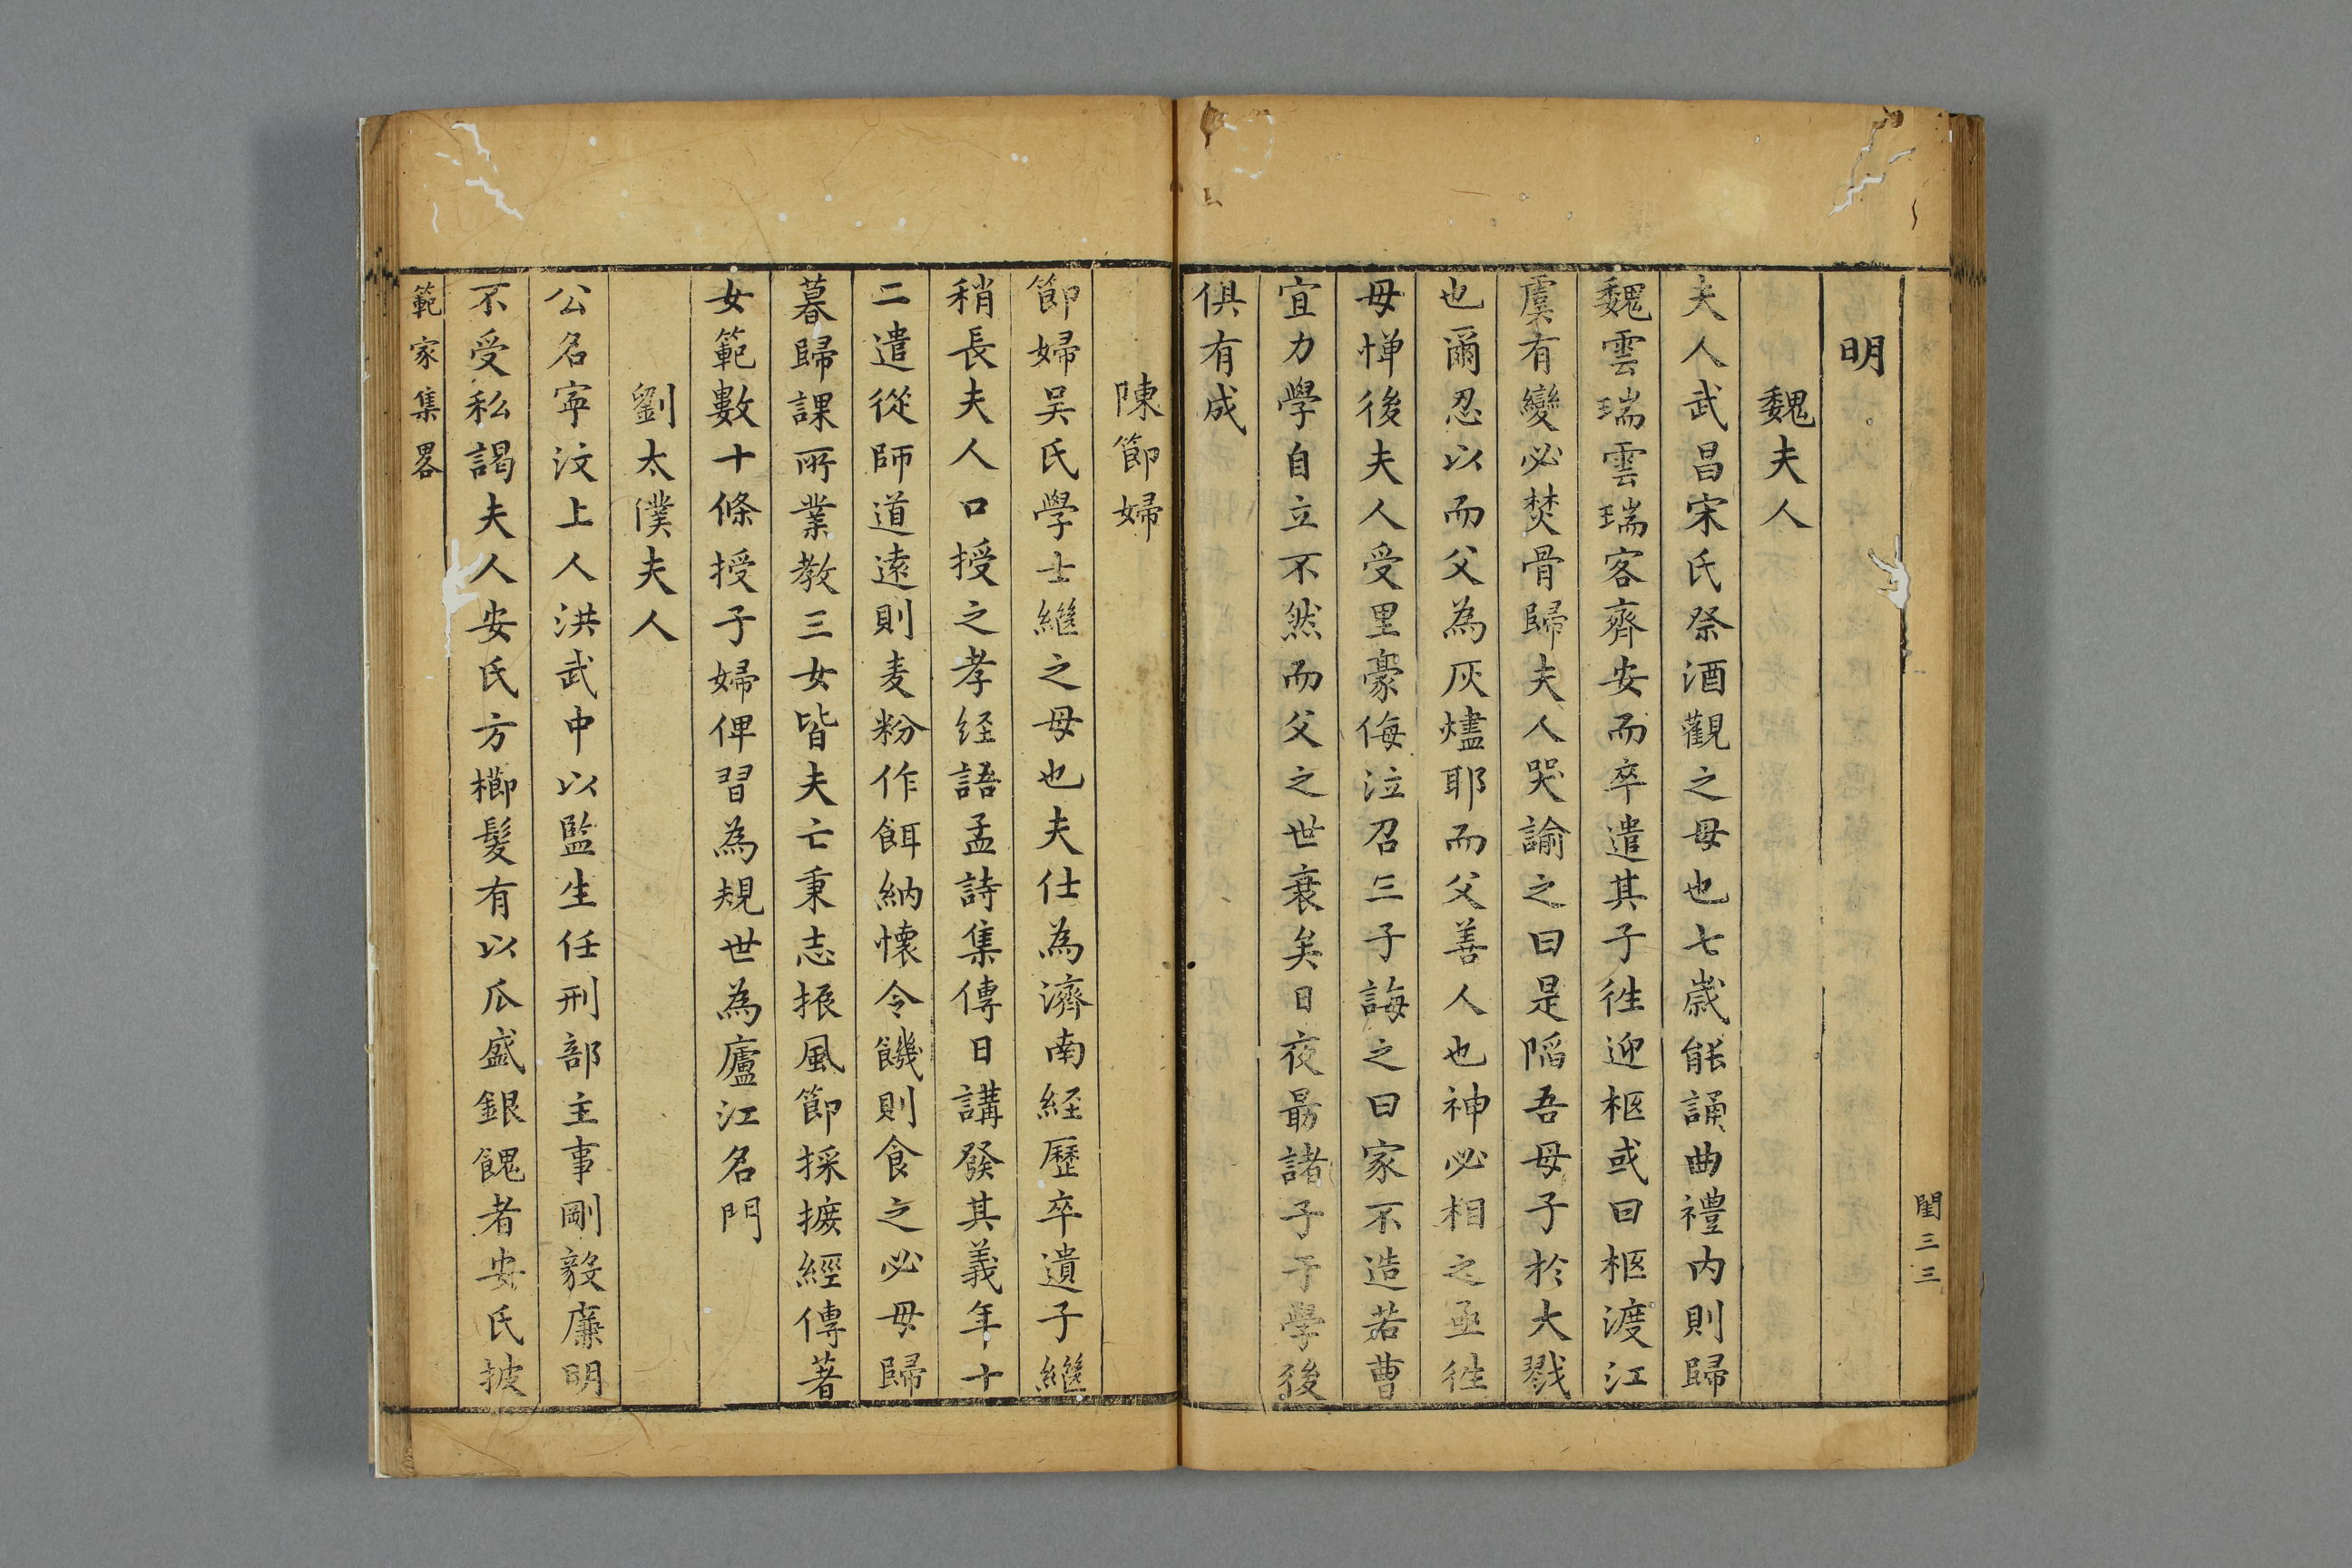 閨三三
明
魏夫人
夫人武昌宋氏祭酒觀之母也七歲能誦曲禮内則歸
魏雲瑞雲瑞客齊安而卒遣其子徃迎柩或曰柩渡江
虞有變必焚骨歸夫人哭諭之曰是陷吾母子於大戮
也爾忍以而父為灰燼耶而父善人也神必相之亟徃
毋憚後夫人受里豪侮泣召三子誨之曰家不造若曹
宜力學自立不然而父之世衰矣日夜勗諸子于學後
俱有成
陳節婦
節婦吴氏學士繼之母也夫仕為濟南経歷卒遺子繼
稍長夫人口授之孝経語孟詩集傳日講發其義年十
二遣從師道遠則麦粉作餌納懷令饑則食之必毋歸
暮歸課所業教三女皆夫亡秉志振風節採摭經傳著
女範數十條授子婦俾習為規世為廬江名門
劉太僕夫人
公名寜汶上人洪武中以監生任刑部主事剛毅廉明
不受私謁夫人安氏方櫛髮有以瓜盛銀餽者安氏披
範家集畧